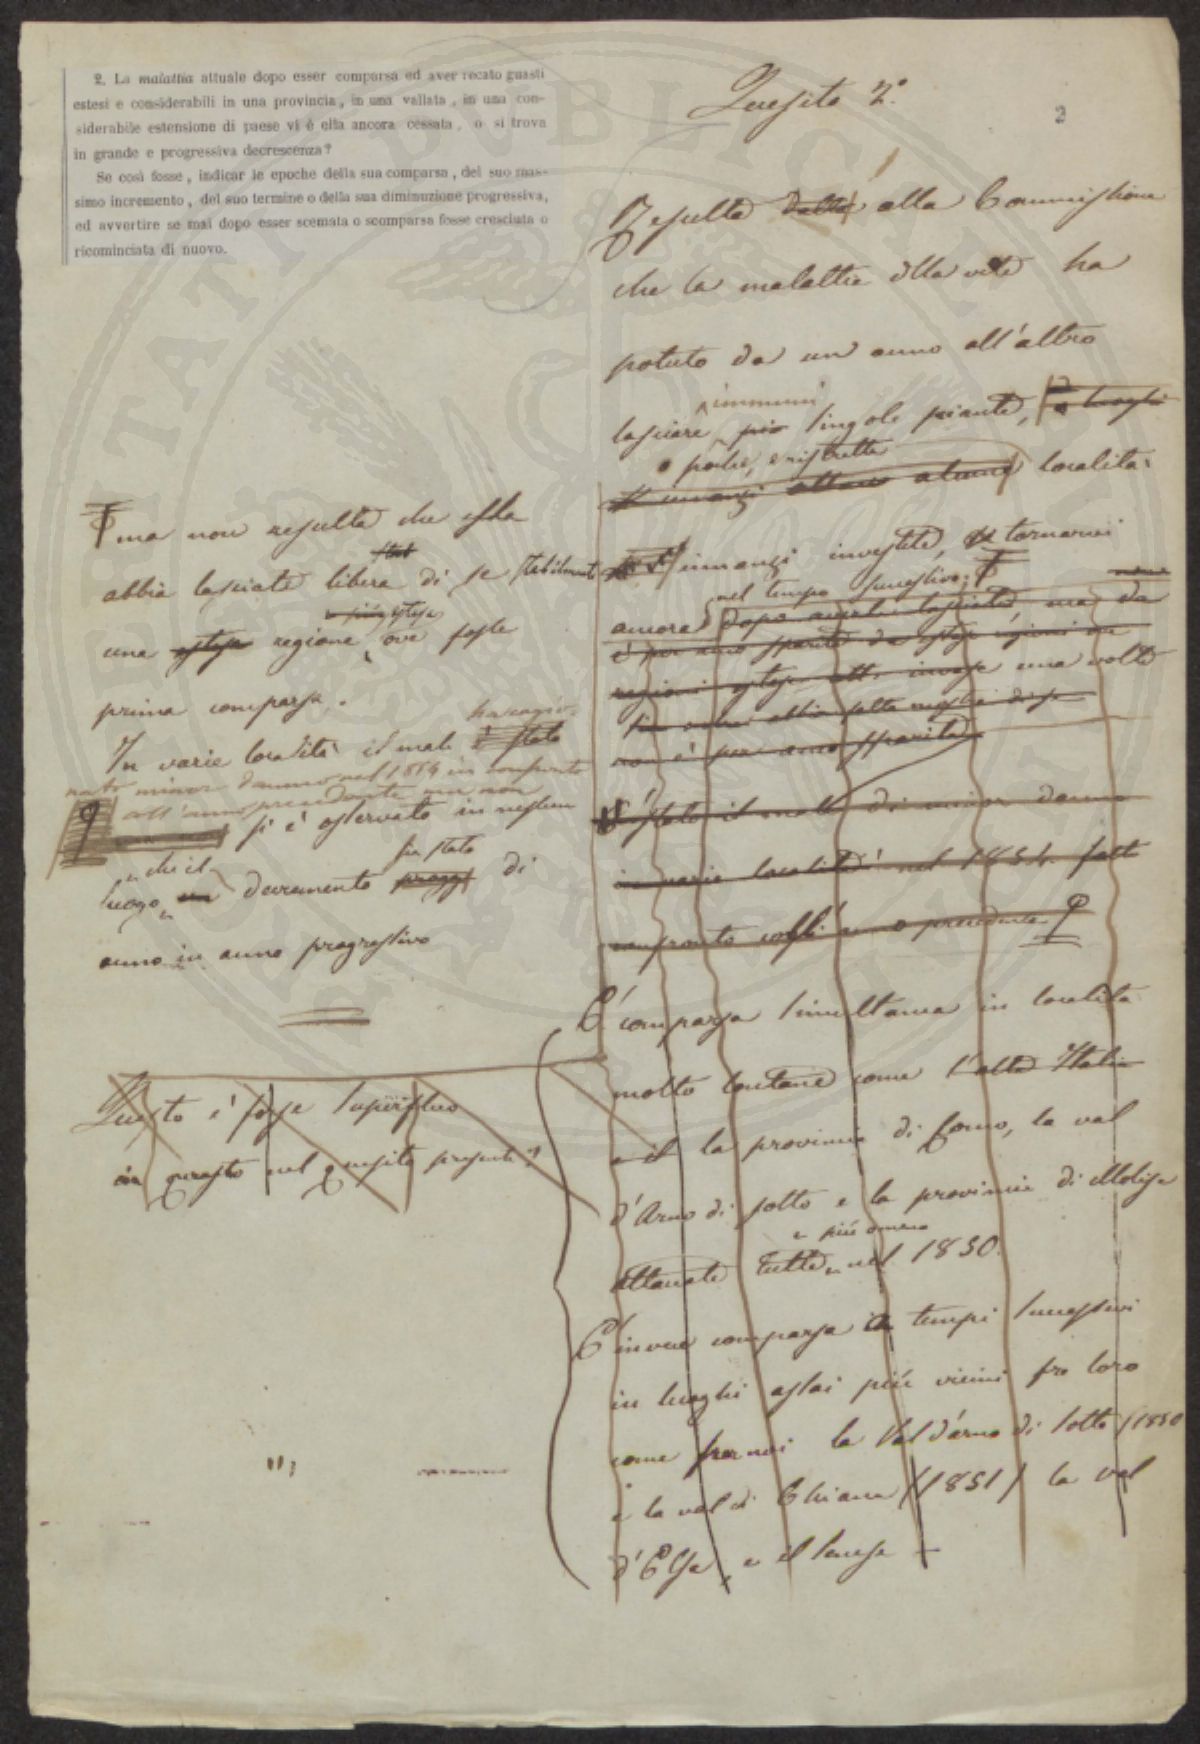 2. La malattia attuale dopo esser comparsa ed aver recato guasti
estesi e considerabili in una provincia, in una vallata, in una con-
siderabile estensione di paese vi è ella ancora cessata, o si trova
in grande e progressiva decrescenza?
Se così fosse, indicar le epoche della sua comparsa, del suo mas-
simo incremento, del suo termine o della sua diminuzione progressiva,
ed avvertire se mai dopo esser scemata o scomparsa fosse cresciuta o
ricominciata di nuovo.
Quesito 2.º
2
Resulta dalla alla Commissione
che la malattia della vite ha
potuto da un anno all'altro
immuni
lasciare più singole piante, o luoghi
o poche, e ristrette
località
innanzi investite, tornarvi
nel tempo successivo;
ancora dopo averle lasciate ma da
regioni estese invase una volta
non è per anco sparita
È stato il male di minor danno
in varie località nel 1854 fatto
confronto coll'anno precedente
ma non resulta che essa
abbia lasciate libere di se stabilmente
più estesa
una estesa regione, ove fosse
prima comparsa.
ha cagio-
In varie località il male è stato
nato minor danno nel 1854 in confronto
all'anno precedente ma non
si è osservato in nessun
che il sia stato
luogo un decremento di
anno in anno progressivo
Questo è forse superfluo
in questo nel quesito presente?
È comparsa simultanea in località
molto lontane come l'alta Italia
e il la provincia di Como, la val
d'Arno di sotto e la provincia di Molise
e più o meno
attaccate tutte nel 1850.
È invece comparsa in tempi successivi
in luoghi assai più vicini fra loro
come fra noi la Val d'arno di sotto (1850
e la val di Chiana (1851) la val
d'Elsa, e il